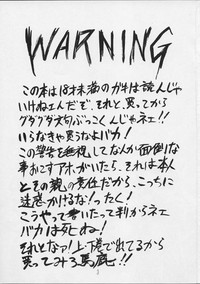 WARNING
この本は18才未満のガキは読んじゃ
いけねエんだぞ、それと、買ってから
グダグダ文句ぶっこくんじゃネェ!!
いらなきゃ買うなよバカ!
この警告を無視してなんか面倒な
事おこすアホがいたら、それは本人
とその親の責任だから、こっちに
迷惑かけるな!ったく!
こうやって書いたって判からネェ
バカは死ね!
それとなァ!上・下巻で出てるから
買ってみろ馬鹿!!